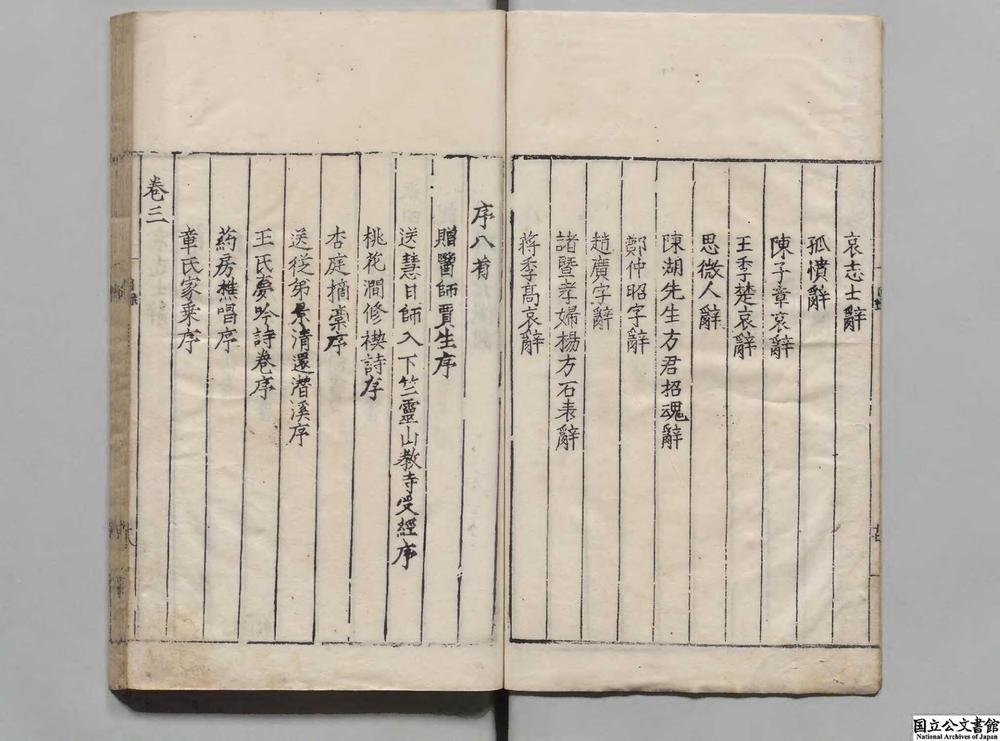 哀志士辭
孤憤辭
陳子章哀辭
王季楚哀辭
思微人辭
陳湖先生方君招魂辭
鄭仲昭字辭
趙廣字辭
諸暨孝婦楊方石表辭
蔣季高哀辭
序八首
贈醫師賈生序
送慧日師入下竺靈山教寺受經序
桃花澗修禊詩序
杏庭摘稾序
送從弟景清還潛溪序
王氏夢吟詩卷序
葯房樵唱序
章氏家乗序
卷三
国立公文書館
National Archives of Japan